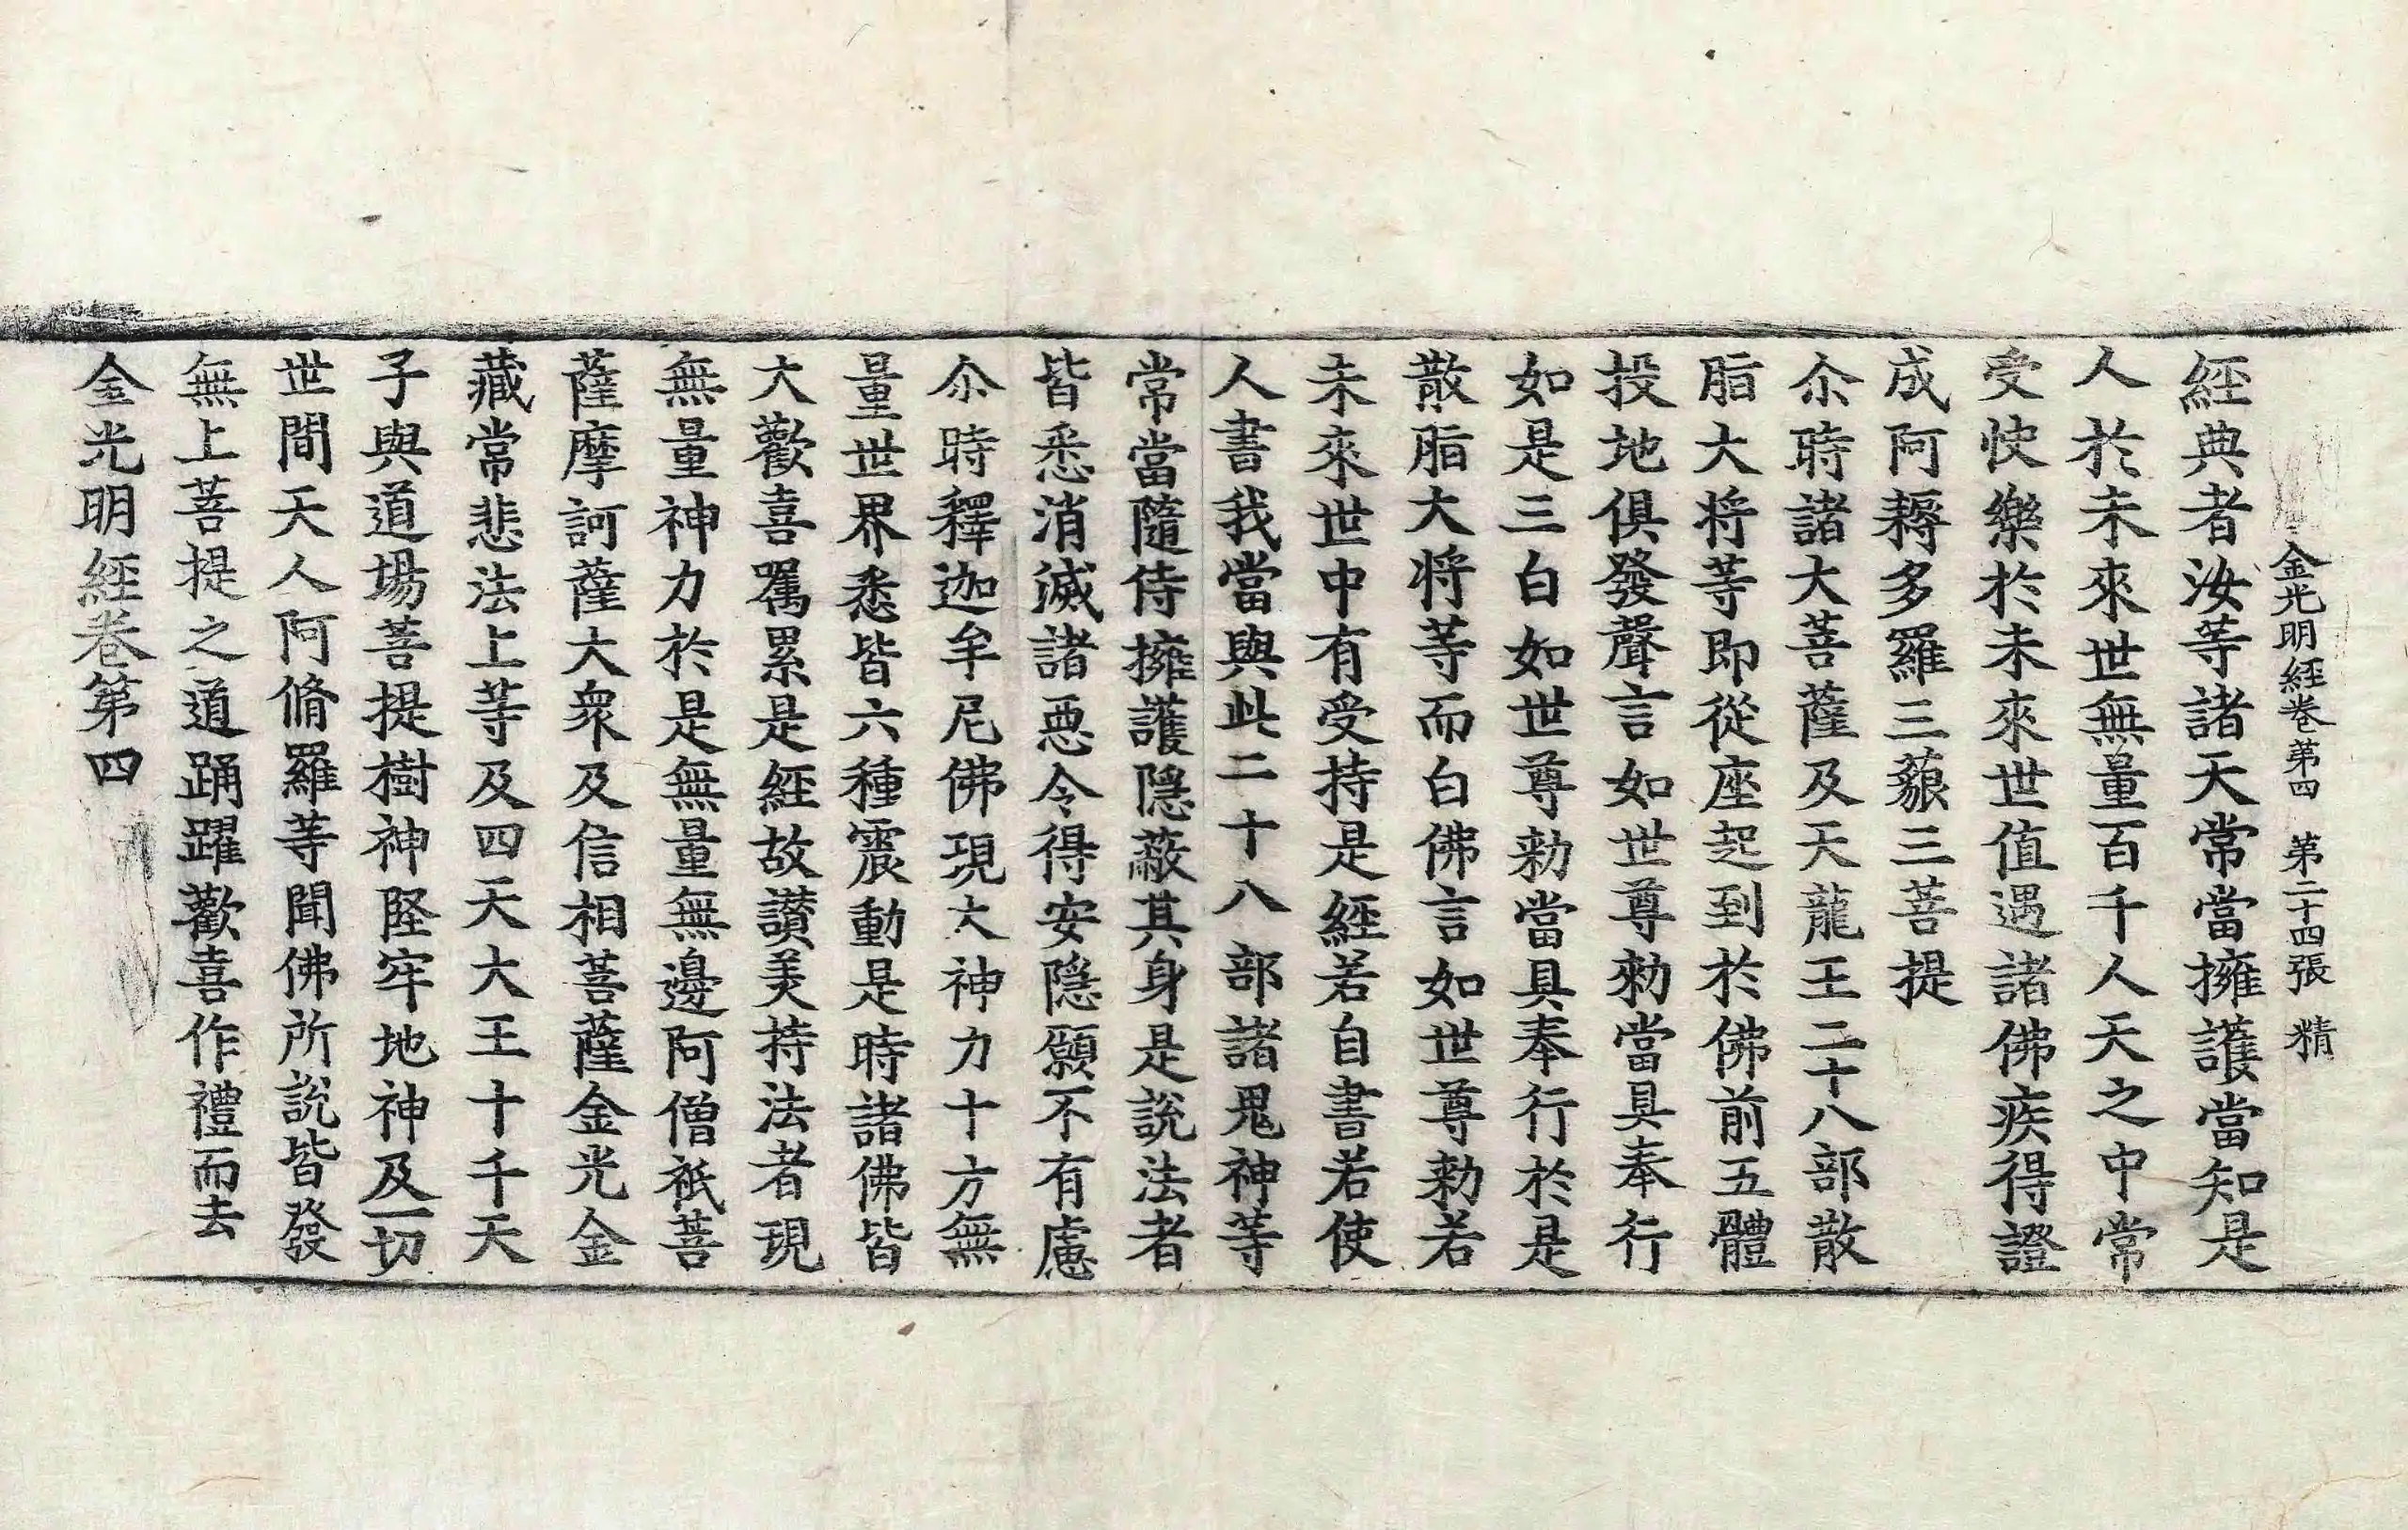 金光明經卷第四 第二十四張 精
經典者汝等諸天常當擁護當知是
人於未來世無量百千人天之中常
受快樂於未來世值遇諸佛疾得證
成阿耨多羅三藐三菩提
尒時諸大菩薩及天龍王二十八部散
脂大將等即從座起到於佛前五體
投地俱發聲言如世尊勑當具奉行
如是三白如世尊勑當具奉行於是
散脂大將等而白佛言如世尊勑若
未來世中有受持是經若自書若使
人書我當與此二十八部諸鬼神等
常當隨侍擁護隱蔽其身是說法者
皆悉消滅諸惡令得安隱願不有慮
尒時釋迦牟尼佛現大神力十方無
量世界悉皆六種震動是時諸佛皆
大歡喜囑累是經故讃美持法者現
無量神力於是無量無邊阿僧祇菩
薩摩訶薩大衆及信相菩薩金光金
藏常悲法上等及四天大王十千天
子與道場菩提樹神堅牢地神及一切
世間天人阿脩羅等聞佛所說皆發
無上菩提之道踊躍歡喜作禮而去
金光明經卷第四